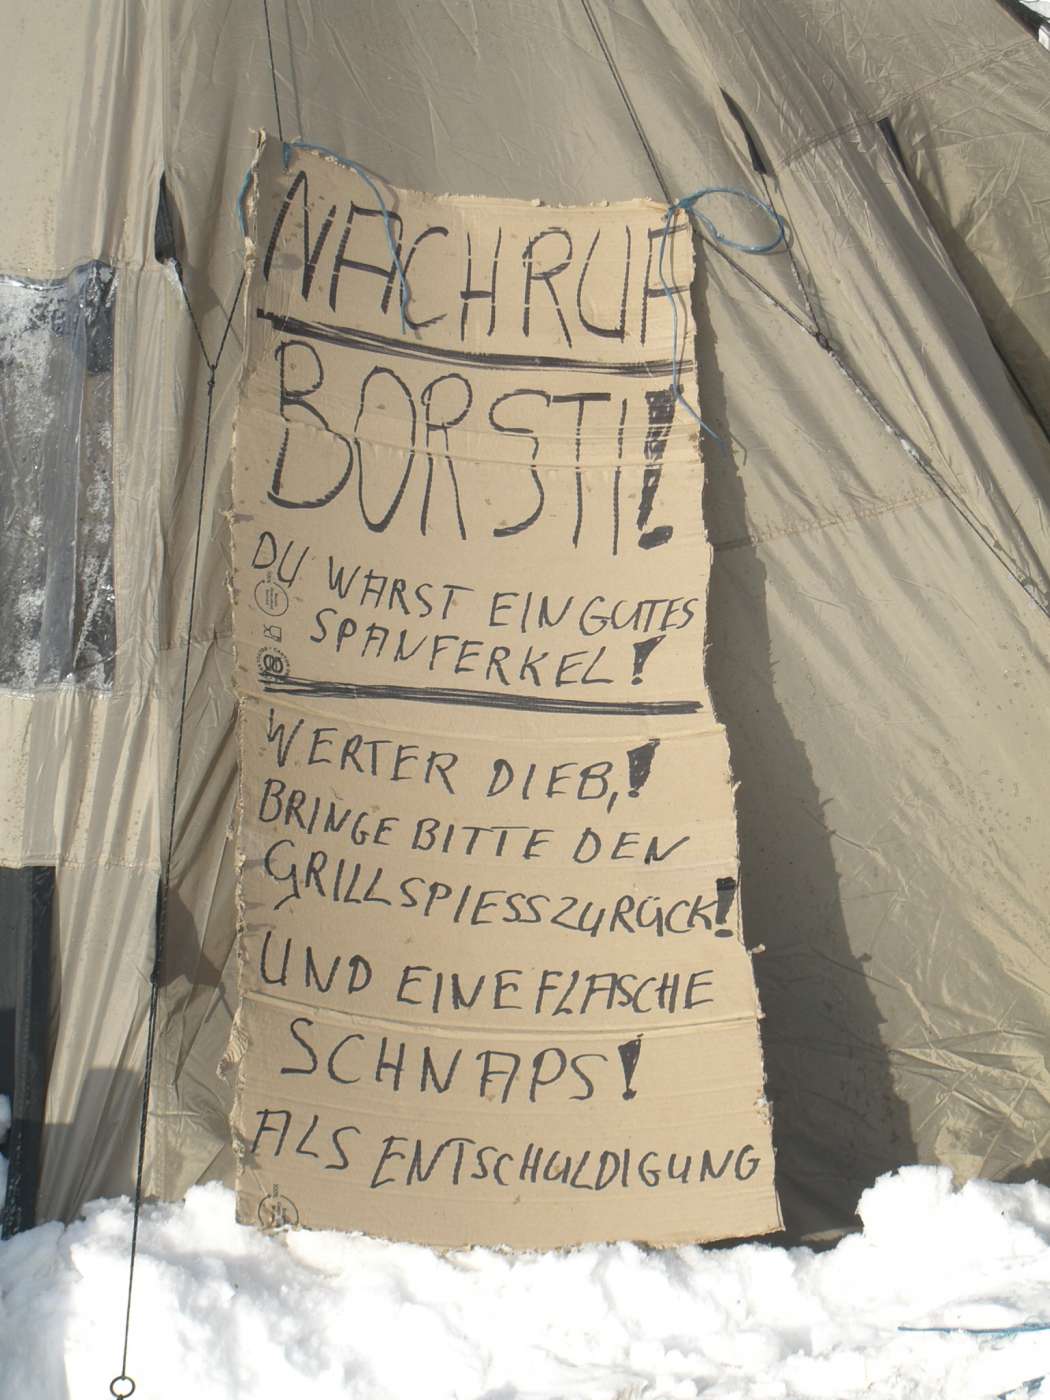 NACHRUF
BORSTI!
DU WARST EIN GUTES
SPANFERKEL!
WERTER DIEB,!
BRINGE BITTE DEN
GRILLSPIESS ZURÜCK!
UND EINE FLASCHE
SCHNAPS!
ALS ENTSCHULDIGUNG